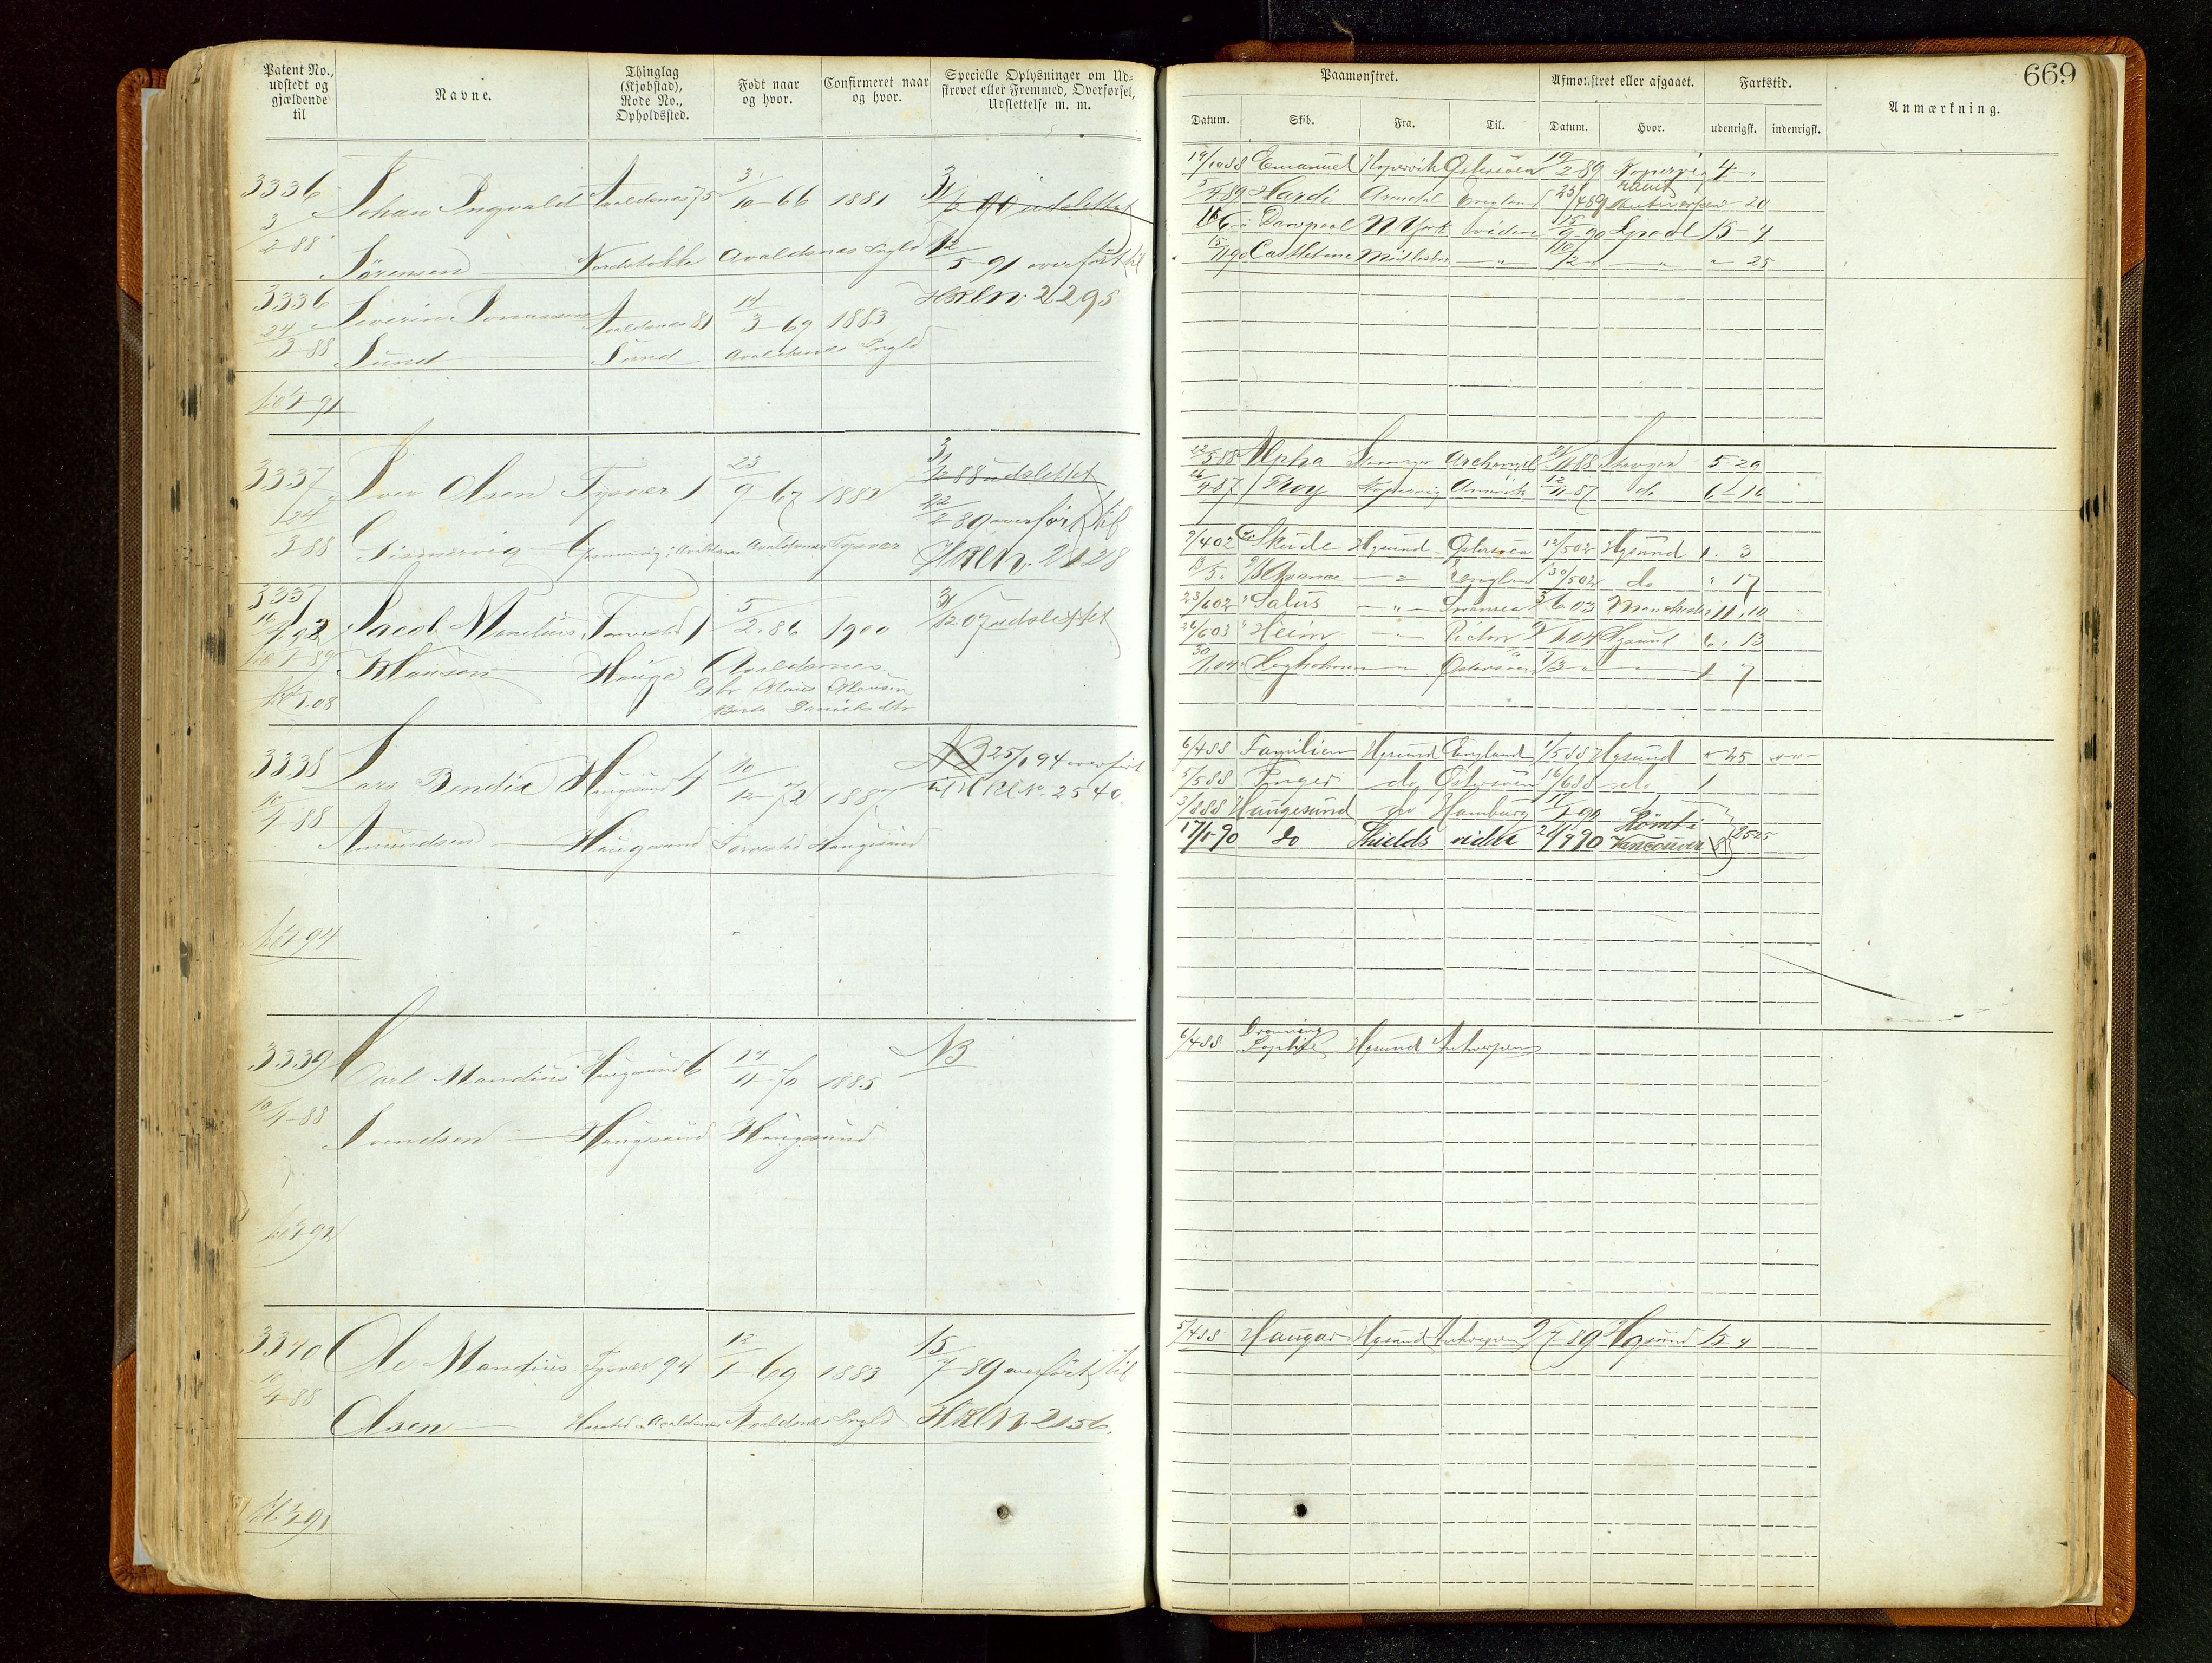 Patent No., udstedt og gjældende til
Navne.
Thinglag (Kjøbstad), Rode No., Opholdssted.
Født naar og hvor.
Confirmeret naar og hvor.
Specielle Oplysninger om Udskrevet eller Fremmed, Overførsel, Udslettelse m. m.
3336 Johan Ingvald Avaldsnes 75 3/10-66 1881 31/6 90 udslettet
3/2-88 Sørensen Nordstokke Avaldsnes Sogld 12/5-91 overført til
HRLN. 2295
3336 Severin Jonassen Avaldsnes 81 14/3-69 1883
24/3-88 Sund Sund Avaldsnes Sogld
til 1/1-91
3337 Iver Olsen Tysvær 1 23/9-67 1882 31/12 88 udslettet
24/3-88 Gismervig Gismervig i Avaldsnes Avaldsnes Tysvær 22/2 89 overført til
HRLN. 2128
3337 Jacob Mandius Torvestad 1 5/2.86 1900 31/12 07 udslettet
Klausen Hauge Avaldsnes
Klaus Klausen
Danielsdtr
3338 Lars Bendix Haugesund 1 10/12-72 1887 NB 25/1 94 overført
10/4-88 Amundsen Haugesund Torvestad Haugesund til HRLN. 2540.
til 1/1-94
3339 Carl Mandius Haugesund 6 14/11-70 1885 NB
10/4-88 Svendsen Haugesund Haugesund
til 1/1-92
3340 Ole Mandius Tysvær 94 12/1-69 1883 15/7-89 overført til
10/4-88 Olsen Avaldsnes Avaldsnes Sogld HRLN. 2156.
til 1/1-91
669
Paamønstret.
Afmønstret eller afgaaet.
Fartstid.
Anmærkning.
Datum. Skib. Fra. Til. Datum. Hvor. udenrigsk. indenrigsk.
19/10 88 Emanuel Kopervik Østersøen 19/2-89 Kopervig 4-"
5/4 89 Hardi Arendal England 25/4 89 Antwerpen - 20
Davspool N York videre 15/9-90 Lpool 15-4
15/11 90 Castletone 16/12 " 25
12/5-88 Alpha Stavanger Archangel 21/11 88 Stavger 5-29
26/4-87 Roy Kopervig 12/11-87 do 6-16
9/4 02 Skude Hgsund Østersøen 12/5 02 Hgsund 1. 3
13/5 England 30/5 02 do " 17
23/6 02 Salus Swansea 3/6 03 Manchester 11.10
26/6 03 Heim Hgsund 6. 13
30/1.04 Østersøen 7/3 1 7
6/4 88 Familien Hgsund England 1/5 88 Hgsund " 25
5/5 88 do Østersøen 16/6 88 do 1
3/8 88 Haugesund do Hamburg
17/1 90 do Shields videre 24/9 90 Vancouver 25 25
6/4 88 Dronning Sophie Hgsund Antwerpen
5/4 88 Haugar Hgsund Antwerpen 2/7-89 Hgsund 15 4